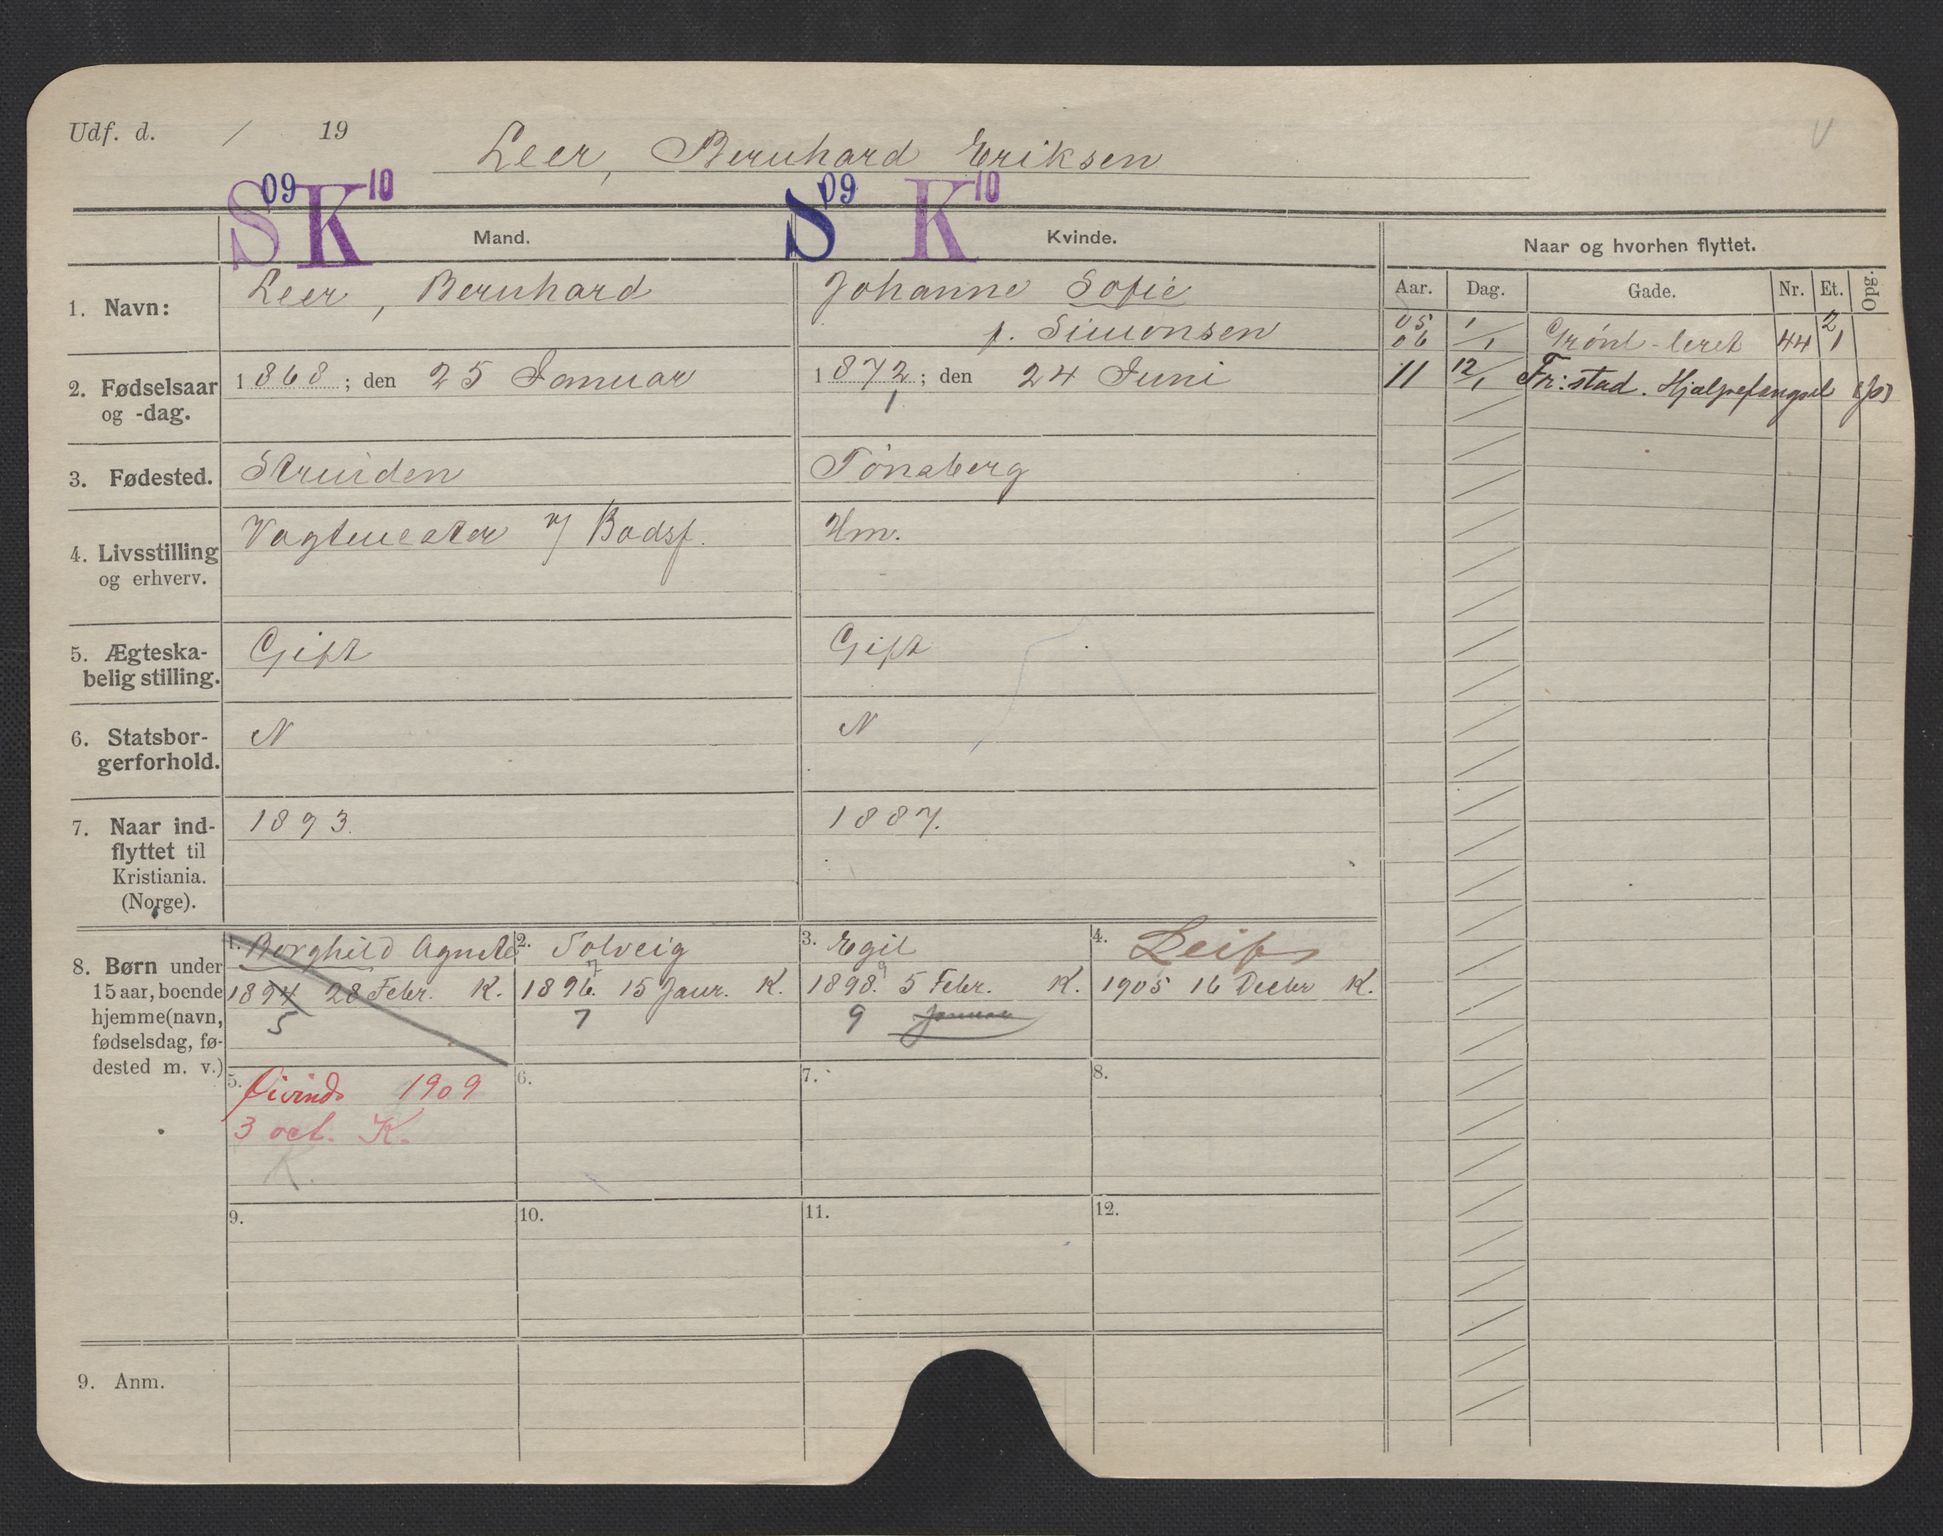 Udf. d. / 19
Leer, Bernhard Eriksen
S 09 K 10 S 09 K 10
Mand. Kvinde. Naar og hvorhen flyttet.
Aar. Dag. Gade. Nr. Et. Opg.
1. Navn: Leer, Bernhard
Johanne Sofie
f. Simonsen
05 1 2
06 /1 Grønl-leret 44 1
11 12/1 Fr:stad. Hjælpefængsel (fo)
2. Fødselsaar
og -dag.
1868; den 25 Januar
1872; den 24 Juni
1
3. Fødested. Strinden Tønsberg
4. Livsstilling
og erhverv.
Vagtmester v/ Bodsf. Hm.
5. Ægteska-
belig stilling.
Gift Gift
6. Statsbor-
gerforhold.
N N
7. Naar ind-
flyttet til
Kristiania.
(Norge).
1893. 1887.
8. Børn under
15 aar, boende
hjemme (navn,
fødselsdag, fø-
dested m. v.)
1. Borghild Agnete
1894 28 Febr. K.
5
2. Solveig
1896. 15 Janr. K.
7
7
3. Egil
1898. 5 Febr. K.
9
9 Januar
4. Leif
1905 16 Decbr K.
5. Øivind 1909
3 oct. K.
K.
6.
7.
8.
9.
10.
11.
12.
9. Anm.